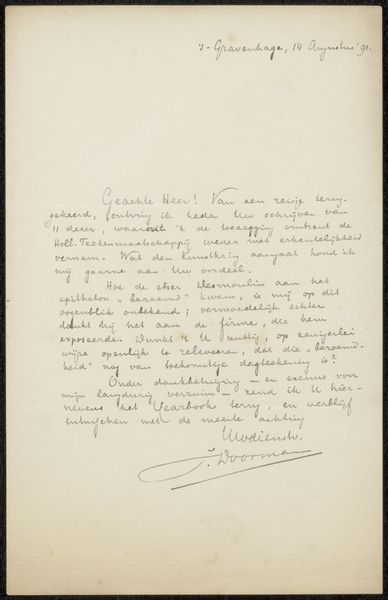 's-Gravenhage, 14 Augustus '91.
Geachte Heer! Van een reisje terug-
gekeerd, ontving ik heden Uw schrijven van
11 dezer, waaruit 'k de toezegging omtrent de
Holl. Teekenmaatschappij weder met erkentelijkheid
vernam. Wat den Kunstkring aangaat houd ik
mij gaarne aan Uw oordeel.
Hoe de etser Desmoulin aan het
epitheton „beroemd" kwam, is mij op dit
oogenblik onbekend; vermoedelijk echter
dankt hij het aan de firma, die hem
exposeerde. Dunkt 't U nuttig, op eenigerlei
wijze openlijk te releveeren, dat die „beroemd-
heid" nog van toekomstige dagteekening is?
Onder dankbetuiging — en excuus voor
mijn langdurig verzuim — zend ik U hier-
nevens het Yearbook terug, en verblijf
intusschen met de meeste achting
Uwdienstw.
J. Doorman